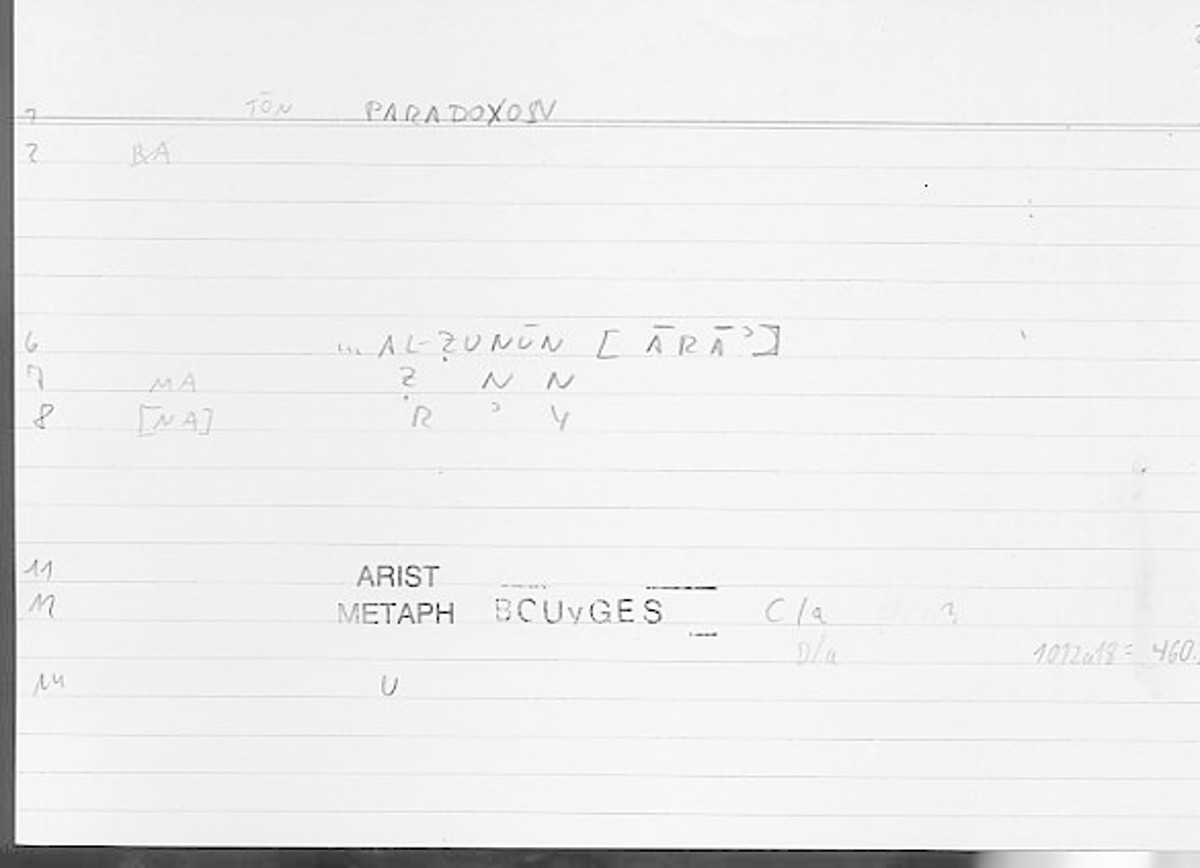 1 TŌN PARADOXOSN
2 BA
6 ... AL-ẒUNŪN [ĀRĀʾ]
7 MA Ẓ N N
8 [NA] R ʾ Y
11 ARIST
12 METAPH BCUyGES C/a 3
D/a 1012a18 = 460.
14 U